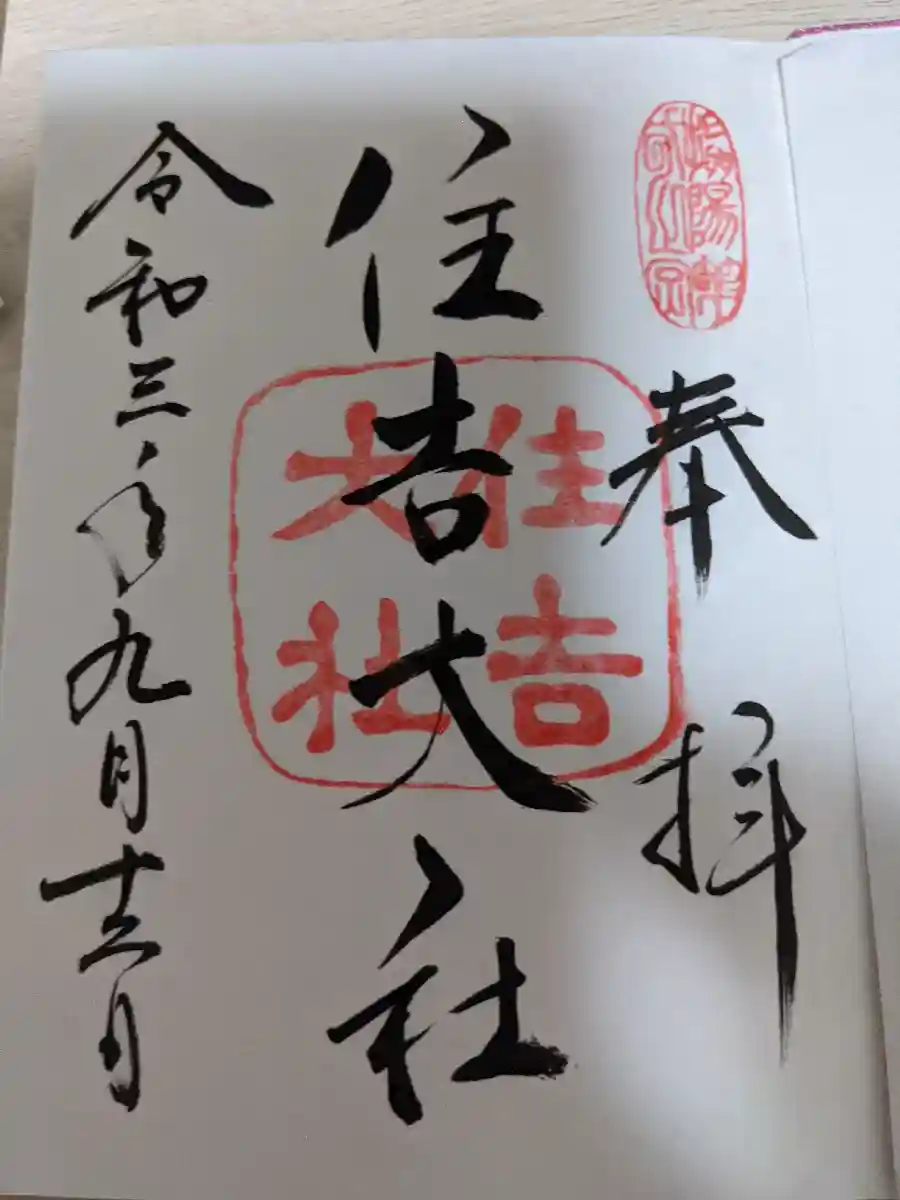 奉拝
住吉大社
住吉
大社
令和三年九月十三日